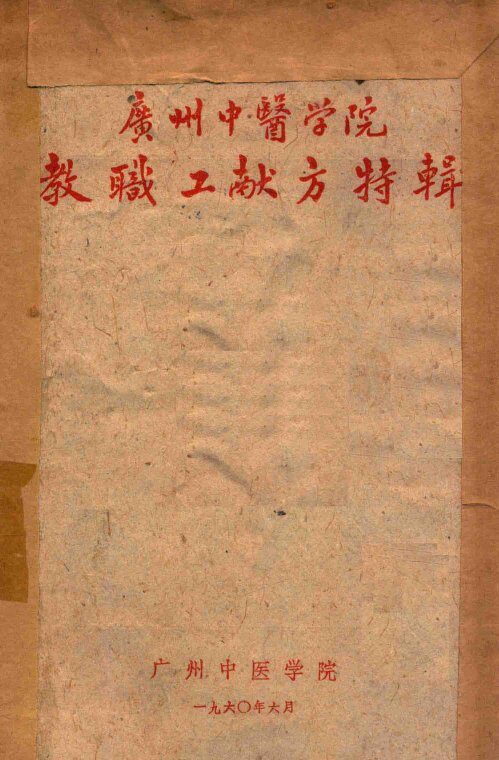 廣州中醫学院
教職工献方特輯
广州中医学院
一九六〇年六月